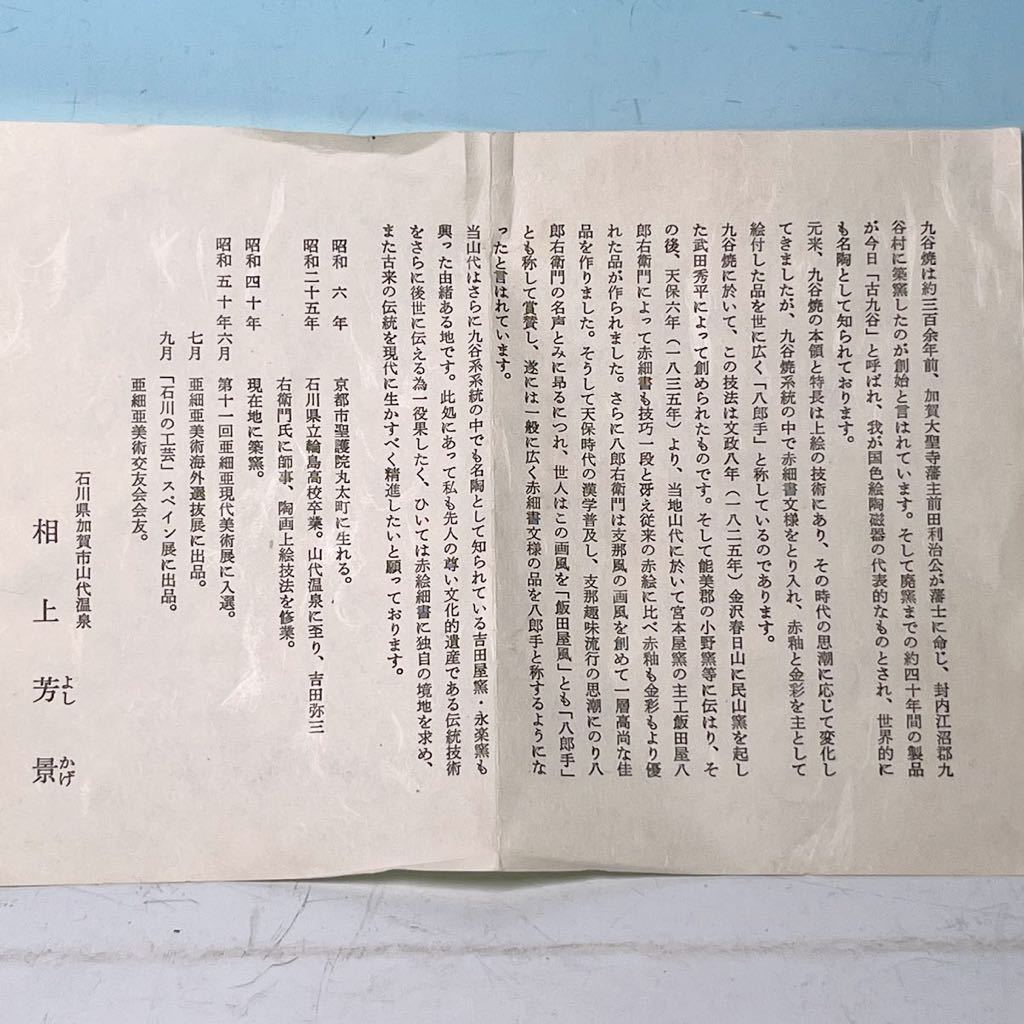 九谷焼は約三百余年前、加賀大聖寺藩主前田利治公が藩士に命じ、封内江沼郡九
谷村に築窯したのが創始と言はれています。そして廃窯までの約四十年間の製品
が今日「古九谷」と呼ばれ、我が国色絵陶磁器の代表的なものとされ、世界的に
も名陶として知られております。
元来、九谷焼の本領と特長は上絵の技術にあり、その時代の思潮に応じて変化し
てきましたが、九谷焼系統の中で赤細書文様をとり入れ、赤釉と金彩を主として
絵付した品を世に広く「八郎手」と称しているのであります。
九谷焼に於いて、この技法は文政八年（一八二五年）金沢春日山に民山窯を起し
た武田秀平によって創められたものです。そして能美郡の小野窯等に伝はり、そ
の後、天保六年（一八三五年）より、当地山代に於いて宮本屋窯の主工飯田屋八
郎右衛門によって赤細書も技巧一段と冴え従来の赤絵に比べ赤釉も金彩もより優
れた品が作られました。さらに八郎右衛門は支那風の画風を創めて一層高尚な佳
品を作りました。そうして天保時代の漢学普及し、支那趣味流行の思潮にのり八
郎右衛門の名声とみに昻るにつれ、世人はこの画風を「飯田屋風」とも「八郎手」
とも称して賞賛し、遂には一般に広く赤細書文様の品を八郎手と称するようにな
ったと言はれています。
当山代はさらに九谷系統の中でも名陶として知られている吉田屋窯・永楽窯も
興った由緒ある地です。此処にあって私も先人の尊い文化的遺産である伝統技術
をさらに後世に伝える為一役果したく、ひいては赤絵細書に独自の境地を求め、
また古来の伝統を現代に生かすべく精進したいと願っております。
昭和 六 年 京都市聖護院丸太町に生れる。
昭和二十五年 石川県立輪島高校卒業。山代温泉に至り、吉田弥三
右衛門氏に師事、陶画上絵技法を修業。
昭和四十年 現在地に築窯。
昭和五十年六月 第十一回亜細亜現代美術展に入選。
七月 亜細亜美術海外選抜展に出品。
九月 「石川の工芸」スペイン展に出品。
亜細亜美術交友会会友。
石川県加賀市山代温泉
相上芳景
よしかげ